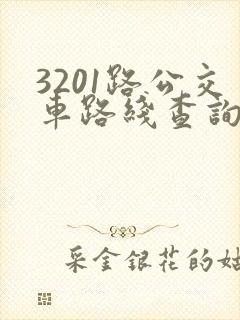 3201路公交
車路綫查詢
采金銀花的姑